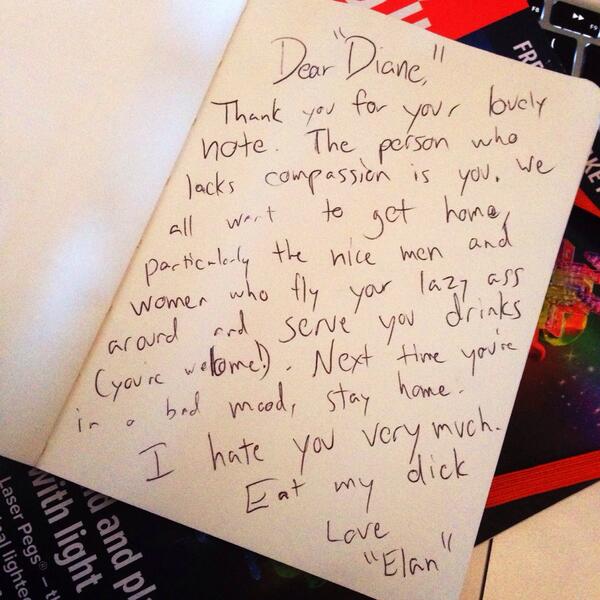 Dear "Diane,"
Thank you for your lovely
note. The person who
lacks compassion is you. We
all want to get home,
particularly the nice men and
women who fly your lazy ass
around and serve you drinks
(you're welcome!). Next time you're
in a bad mood, stay home.
I hate you very much.
Eat my dick
Love
"Elan"
FR
KE
F8
F9
nd and pl
with light
Laser Pegs® – t